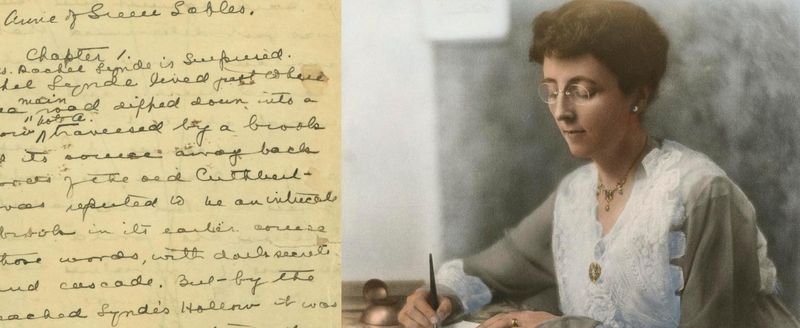 Anne of Green Gables.
Chapter 1.
s. Rachel Lynde is Surprised.
hel Lynde lived just where
main
road dipped down into a
"Note A."
traversed by a brook
its source away back
oods of the old Cuthbert-
was reputed to be an intricate
brook in its earlier course
those woods, with dark secrets
and cascade. But by the
eached Lynde's Hollow it was